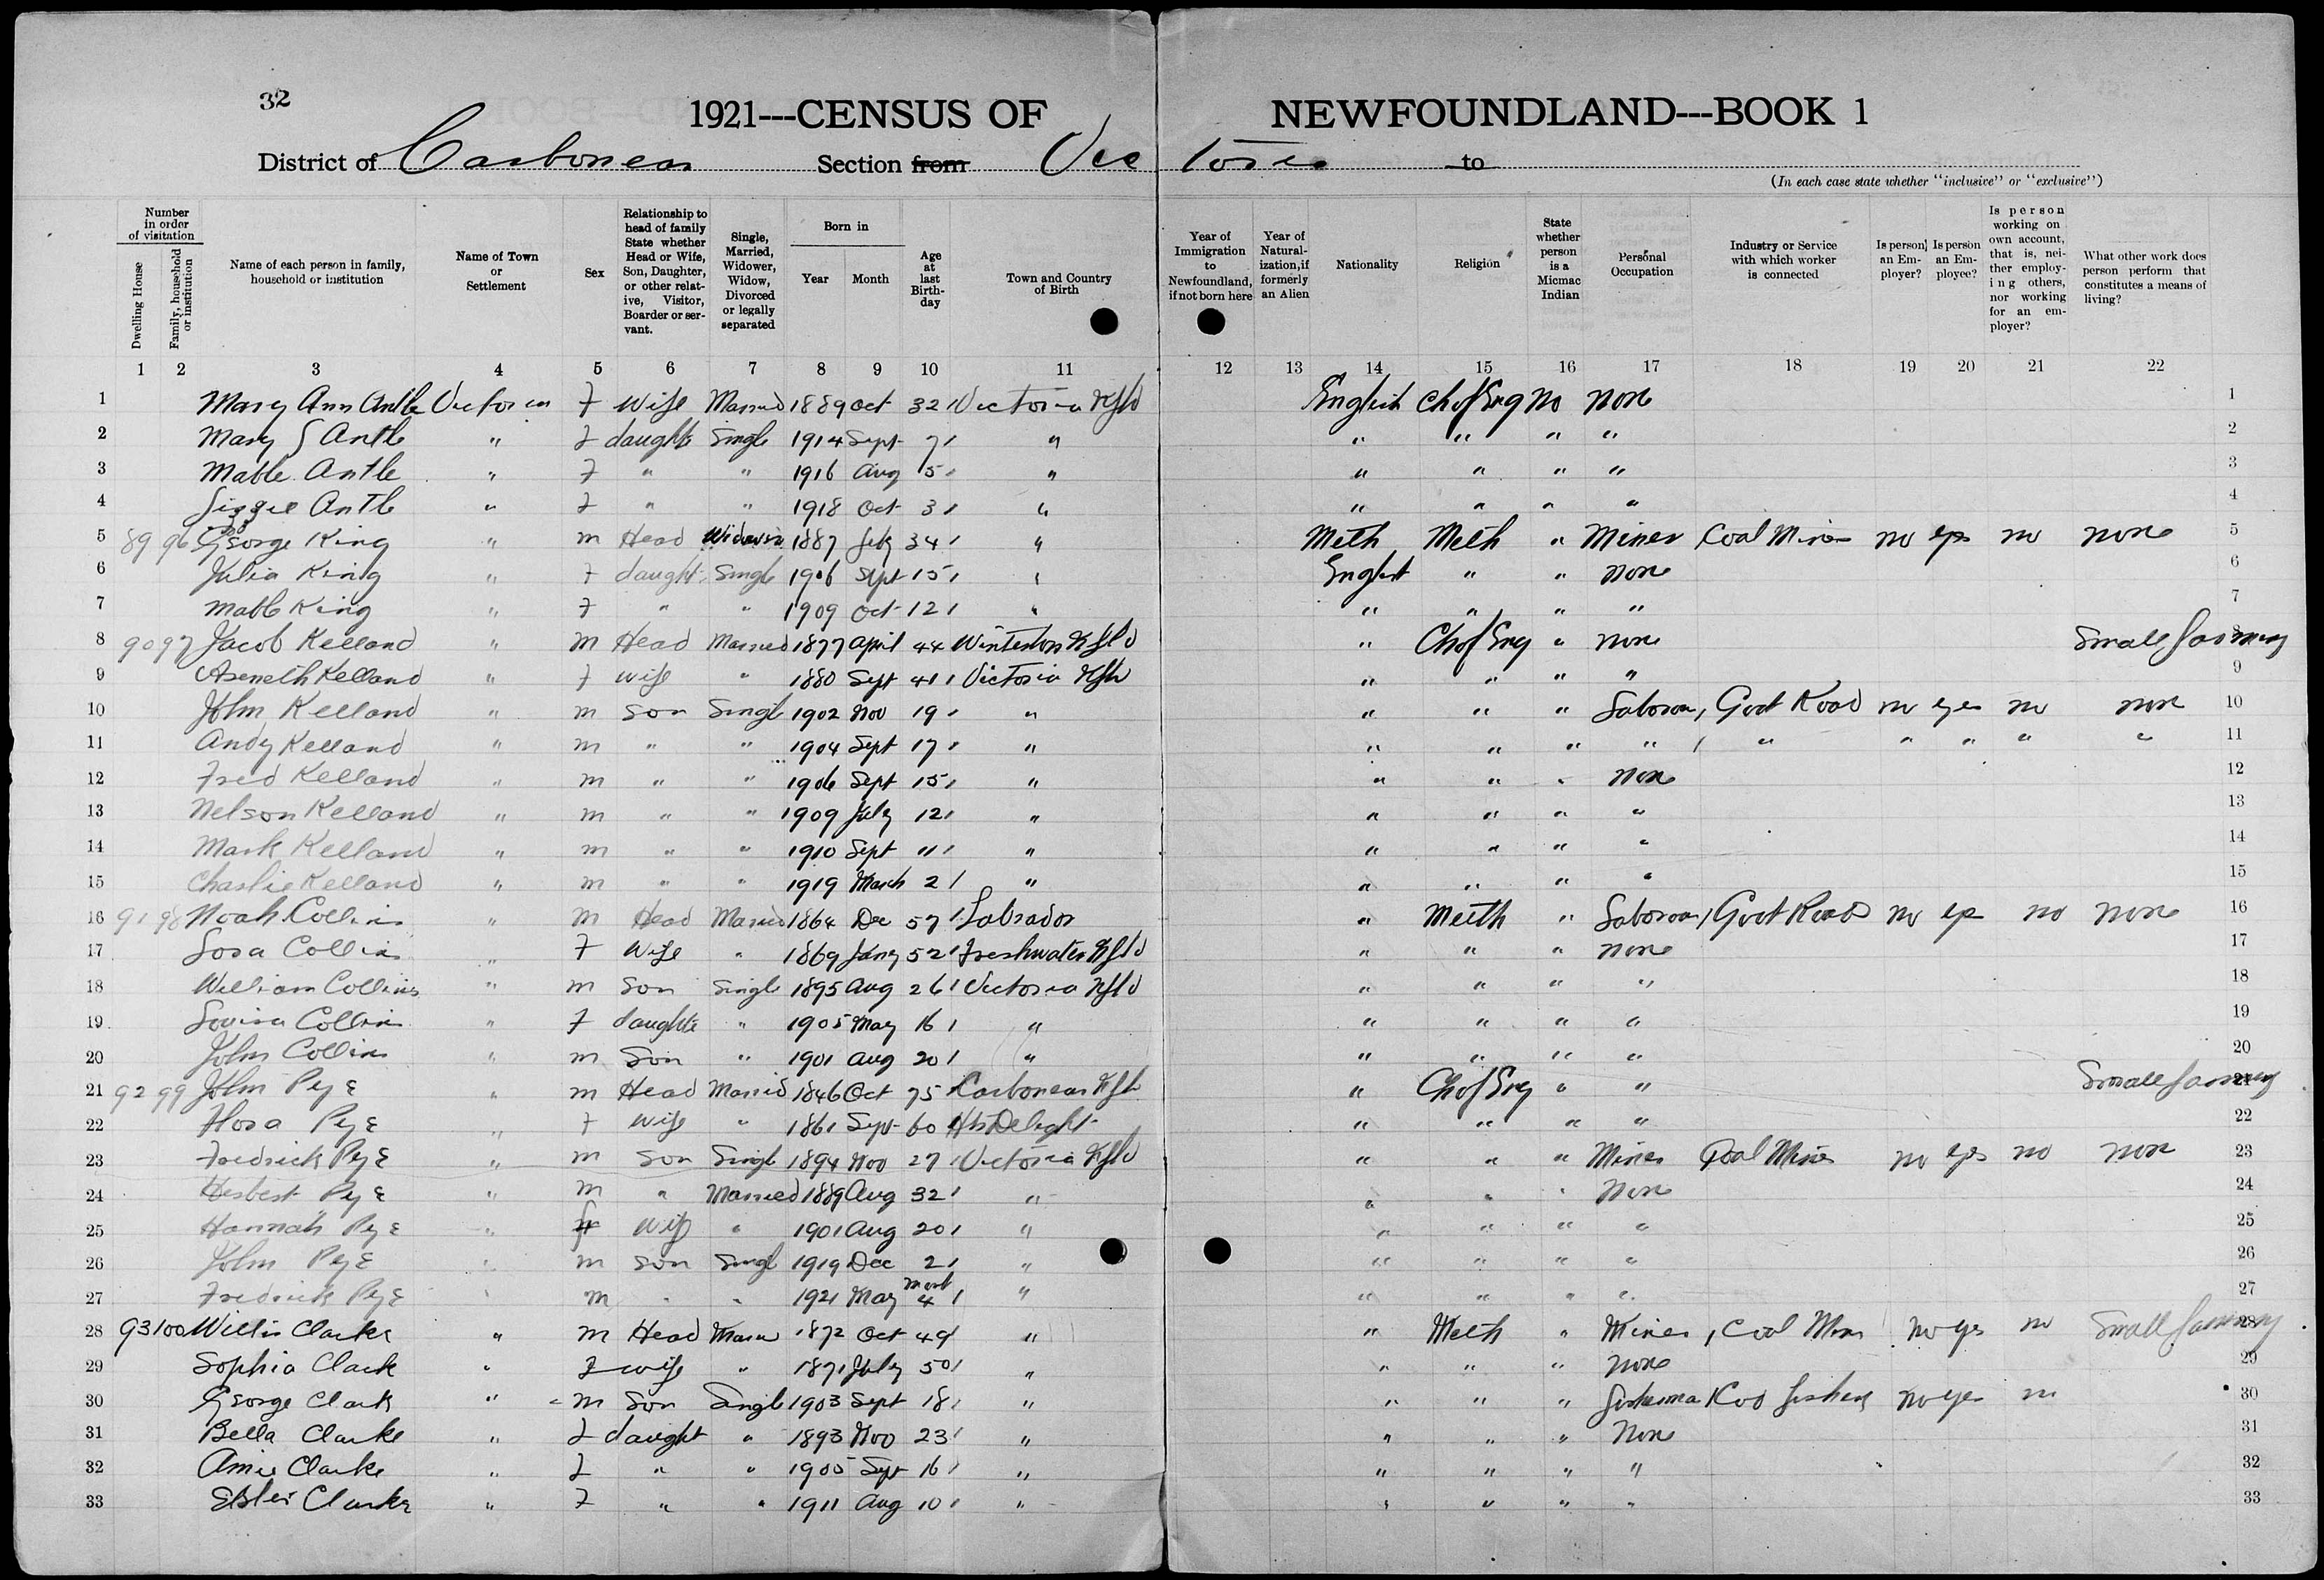 32
1921---CENSUS OF NEWFOUNDLAND---BOOK 1
District of Carbonear Section from Victoria to
(In each case state whether "inclusive" or "exclusive")
Number in order of visitation
Dwelling House
Family, household or institution
Name of each person in family, household or institution
Name of Town or Settlement
Sex
Relationship to head of family State whether Head or Wife, Son, Daughter, or other relative, Visitor, Boarder or servant.
Single, Married, Widower, Widow, Divorced or legally separated
Born in
Year
Month
Age at last Birthday
Town and Country of Birth
Year of Immigration to Newfoundland, if not born here
Year of Naturalization, if formerly an Alien
Nationality
Religion
State whether person is a Micmac Indian
Personal Occupation
Industry or Service with which worker is connected
Is person an Employer?
Is person an Employee?
Is person working on own account, that is, neither employing others, nor working for an employer?
What other work does person perform that constitutes a means of living?
1 2 3 4 5 6 7 8 9 10 11 12 13 14 15 16 17 18 19 20 21 22
1 Mary Ann Antle Victoria F wife Married 1889 Oct 32 Victoria Nfld English Ch of Eng No none 1
2 Mary J Antle " F daughte Single 1914 Sept 7 " " " " " 2
3 Mable Antle " F " " 1916 Aug 5 " " " " " 3
4 Lizzie Antle " F " " 1918 Oct 3 " " " " " 4
5 89 96 George King " m Head Widower 1887 Feb 34 " Meth Meth " Miner Coal Mine no yes no none 5
6 Julia King " F daught Single 1906 Sept 15 " English " " none 6
7 Mable King " F " " 1909 Oct 12 " " " " " 7
8 90 97 Jacob Kelland " m Head Married 1877 April 44 Winterton Nfld " Ch of Eng " none Small farming 8
9 Aseneth Kelland " F wife " 1880 Sept 41 Victoria Nfld " " " " 9
10 John Kelland " m Son Single 1902 Nov 19 " " " " Laborer, Govt Road no yes no none 10
11 Andy Kelland " m " " 1904 Sept 17 " " " " " " " " " " 11
12 Fred Kelland " m " " 1906 Sept 15 " " " " none 12
13 Nelson Kelland " m " " 1909 July 12 " " " " " 13
14 Mark Kelland " m " " 1910 Sept 11 " " " " " 14
15 Charlie Kelland " m " " 1919 March 2 " " " " " 15
16 91 98 Noah Collins " m Head Married 1864 Dec 57 Labrador " Meth " Laborer, Govt Roads no yes no none 16
17 Lora Collins " F Wife " 1869 Jany 52 Freshwater Nfld " " " none 17
18 William Collins " m Son Single 1895 Aug 26 Victoria Nfld " " " " 18
19 Louisa Collins " F daughte " 1905 May 16 " " " " " 19
20 John Collins " m Son " 1901 Aug 20 " " " " " 20
21 92 99 John Pye " m Head Married 1846 Oct 75 Carbonear Nfld " Ch of Eng " " Small farming 21
22 Flora Pye " F wife " 1861 Sept 60 Hts Delight " " " " 22
23 Fredrick Pye " m Son Single 1894 Nov 27 Victoria Nfld " " " Miner Coal Mine no yes no none 23
24 Herbert Pye " m " Married 1889 Aug 32 " " " " None 24
25 Hannah Pye " f wife " 1901 Aug 20 " " " " " 25
26 John Pye " m son Single 1919 Dec 2 " " " " " 26
27 Fredrick Pye " m " " 1921 May 4 mont " " " " " 27
28 93 100 Willis Clarke " m Head Marr 1872 Oct 49 " " Meth " Miner, Coal Mine no yes no Small farming 28
29 Sophia Clark " F wife " 1871 July 50 " " " " none 29
30 George Clark " m Son Single 1903 Sept 18 " " " " Fisherma Cod fishery no yes no 30
31 Bella Clarke " F daught " 1893 Nov 23 " " " " None 31
32 Amie Clarke " F " " 1905 Sept 16 " " " " " 32
33 Clarke " F " " 1911 Aug 10 " " " " " 33